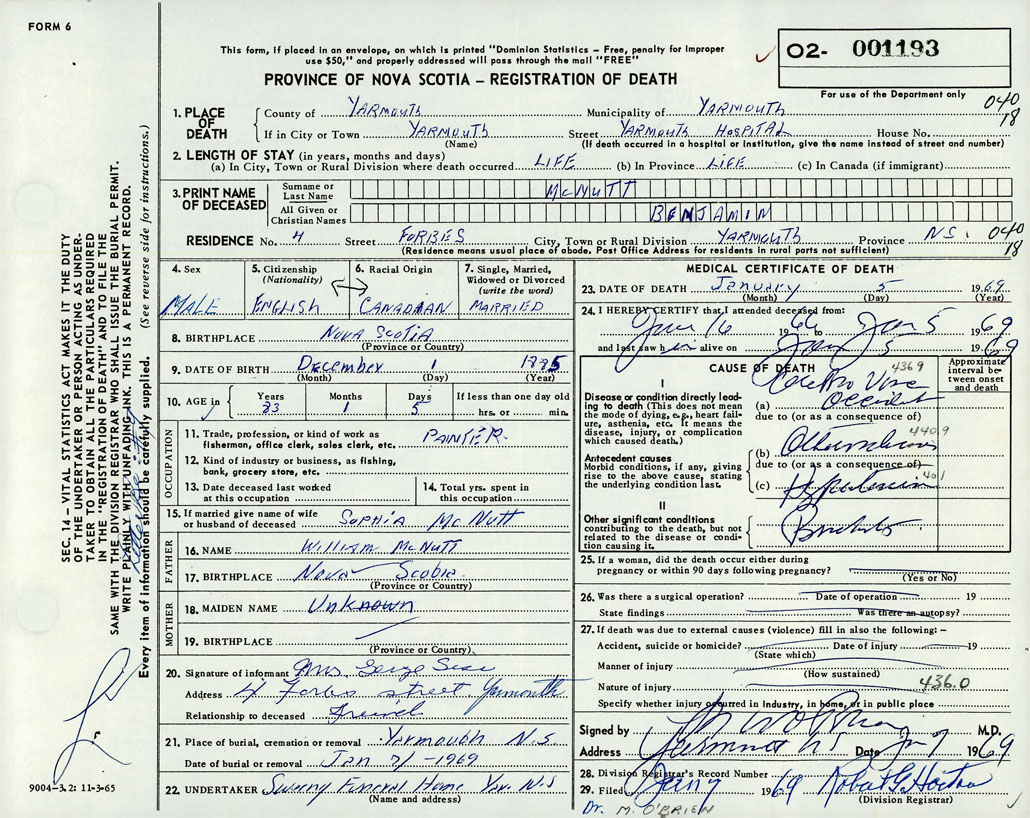 FORM 6
This form, if placed in an envelope, on which is printed "Dominion Statistics – Free, penalty for improper
use $50," and properly addressed will pass through the mail "FREE"
O2- 001193
PROVINCE OF NOVA SCOTIA – REGISTRATION OF DEATH
For use of the Department only
040
18
1. PLACE OF DEATH
County of YARMOUTH Municipality of YARMOUTH
If in City or Town YARMOUTH Street YARMOUTH HOSPITAL House No.
(Name) (If death occurred in a hospital or institution, give the name instead of street and number)
2. LENGTH OF STAY (in years, months and days)
(a) In City, Town or Rural Division where death occurred LIFE (b) In Province LIFE (c) In Canada (if immigrant)
3. PRINT NAME OF DECEASED
Surname or Last Name McNUTT
All Given or Christian Names BENJAMIN
RESIDENCE No. 4 Street FORBES City, Town or Rural Division YARMOUTH Province N.S. 040
18
(Residence means usual place of abode. Post Office Address for residents in rural parts not sufficient)
4. Sex MALE
5. Citizenship (Nationality) ENGLISH
6. Racial Origin CANADIAN
7. Single, Married, Widowed or Divorced (write the word) MARRIED
8. BIRTHPLACE NOVA SCOTIA
(Province or Country)
9. DATE OF BIRTH December 1
(Month) (Day) (Year)
10. AGE in Years Months Days If less than one day old
1 5 hrs. or min.
OCCUPATION
11. Trade, profession, or kind of work as
fisherman, office clerk, sales clerk, etc. PAINTER.
12. Kind of industry or business, as fishing,
bank, grocery store, etc.
13. Date deceased last worked
at this occupation
14. Total yrs. spent in
this occupation
15. If married give name of wife
or husband of deceased SOPHIA McNUTT
FATHER
16. NAME WILLIAM McNUTT
17. BIRTHPLACE NOVA SCOTIA
(Province or Country)
MOTHER
18. MAIDEN NAME UNKNOWN
19. BIRTHPLACE
(Province or Country)
20. Signature of informant Mrs
Address 4 Forbes street Yarmouth
Relationship to deceased Friend
21. Place of burial, cremation or removal Yarmouth N.S
Date of burial or removal Jan 7/-1969
22. UNDERTAKER Sweeny Funeral Home Yar. N.S
(Name and address)
MEDICAL CERTIFICATE OF DEATH
23. DATE OF DEATH January 5 1969
(Month) (Day) (Year)
24. I HEREBY CERTIFY that I attended deceased from:
16 1966 to Jan 5 1969
and last saw him alive on Jan 5 1969
CAUSE OF DEATH
4369
Approximate
interval be-
tween onset
and death
I
Disease or condition directly lead-
ing to death (This does not
mean the mode of dying, e.g., heart fail-
ure, asthenia, etc. It means the
disease, injury, or complication
which caused death.)
(a)
due to (or as a consequence of)
440.9
Antecedent causes
Morbid conditions, if any, giving
rise to the above cause, stating
the underlying condition last.
(b)
due to (or as a consequence of)
401
(c)
II
Other significant conditions
contributing to the death, but not
related to the disease or condi-
tion causing it.
25. If a woman, did the death occur either during
pregnancy or within 90 days following pregnancy?
(Yes or No)
26. Was there a surgical operation? Date of operation 19
State findings Was there an autopsy?
27. If death was due to external causes (violence) fill in also the following: –
Accident, suicide or homicide? Date of injury 19
(State which)
Manner of injury
(How sustained)
Nature of injury 436.0
Specify whether injury occurred in industry, in home, or in public place
Signed by M.D.
Address Yarmouth NS Date Jan 7 1969
28. Division Registrar's Record Number
29. Filed 1969 Robert G. Horton
(Division Registrar)
Dr. M. O'BRIEN
SEC. 14 – VITAL STATISTICS ACT MAKES IT THE DUTY
OF THE UNDERTAKER OR PERSON ACTING AS UNDER-
TAKER TO OBTAIN ALL THE PARTICULARS REQUIRED
IN THE "REGISTRATION OF DEATH" AND TO FILE THE
SAME WITH THE DIVISION REGISTRAR WHO SHALL ISSUE THE BURIAL PERMIT.
WRITE PLAINLY WITH UNFADING INK. THIS IS A PERMANENT RECORD.
Every item of information should be carefully supplied. (See reverse side for instructions.)
9004-3.2: 11-3-65